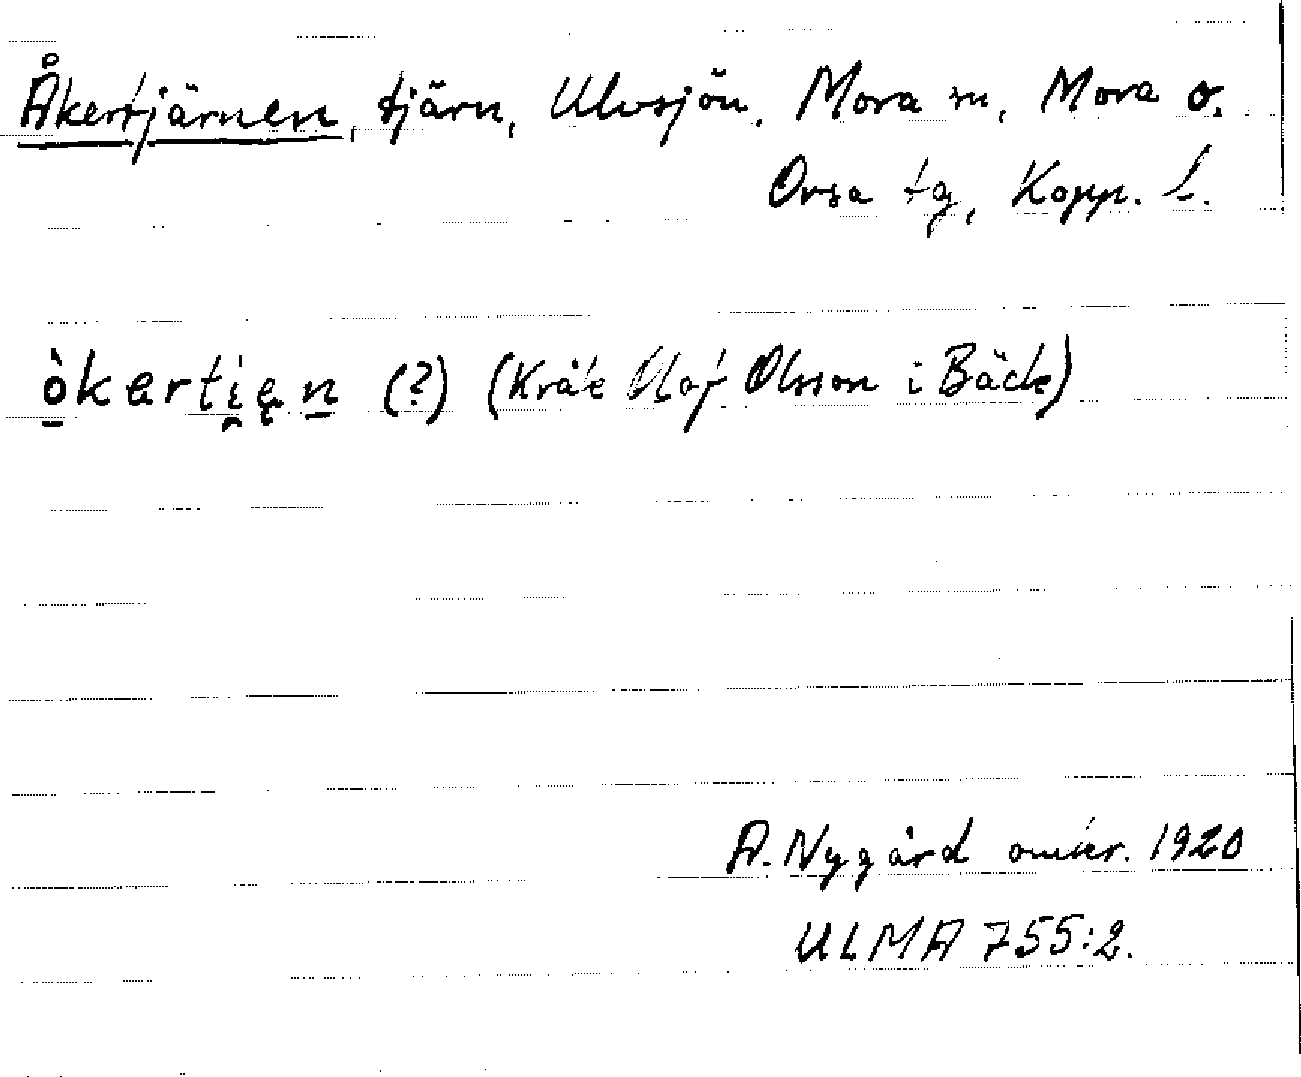 Åkertjärnen, tjärn, Ulvsjön, Mora sn, Mora o.
Orsa tg, Kopp. l.
ò̱kerti̯ęn̠ (?) (Kråk Olof Olsson i Bäck)
A. Nygård omkr. 1920
ULMA 755:2.